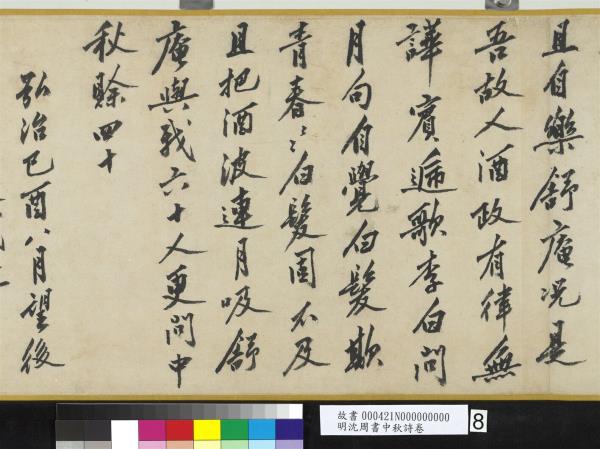 且自樂舒庵况是
吾故人酒政有律無
譁賓遞歌李白問
月句自覺白髮欺
青春〻〻白髮固不及
且把酒波連月吸舒
庵與我六十人更問中
秋賒四十
弘治己酉八月望後
故書 000421N000000000
明沈周書中秋詩卷
8